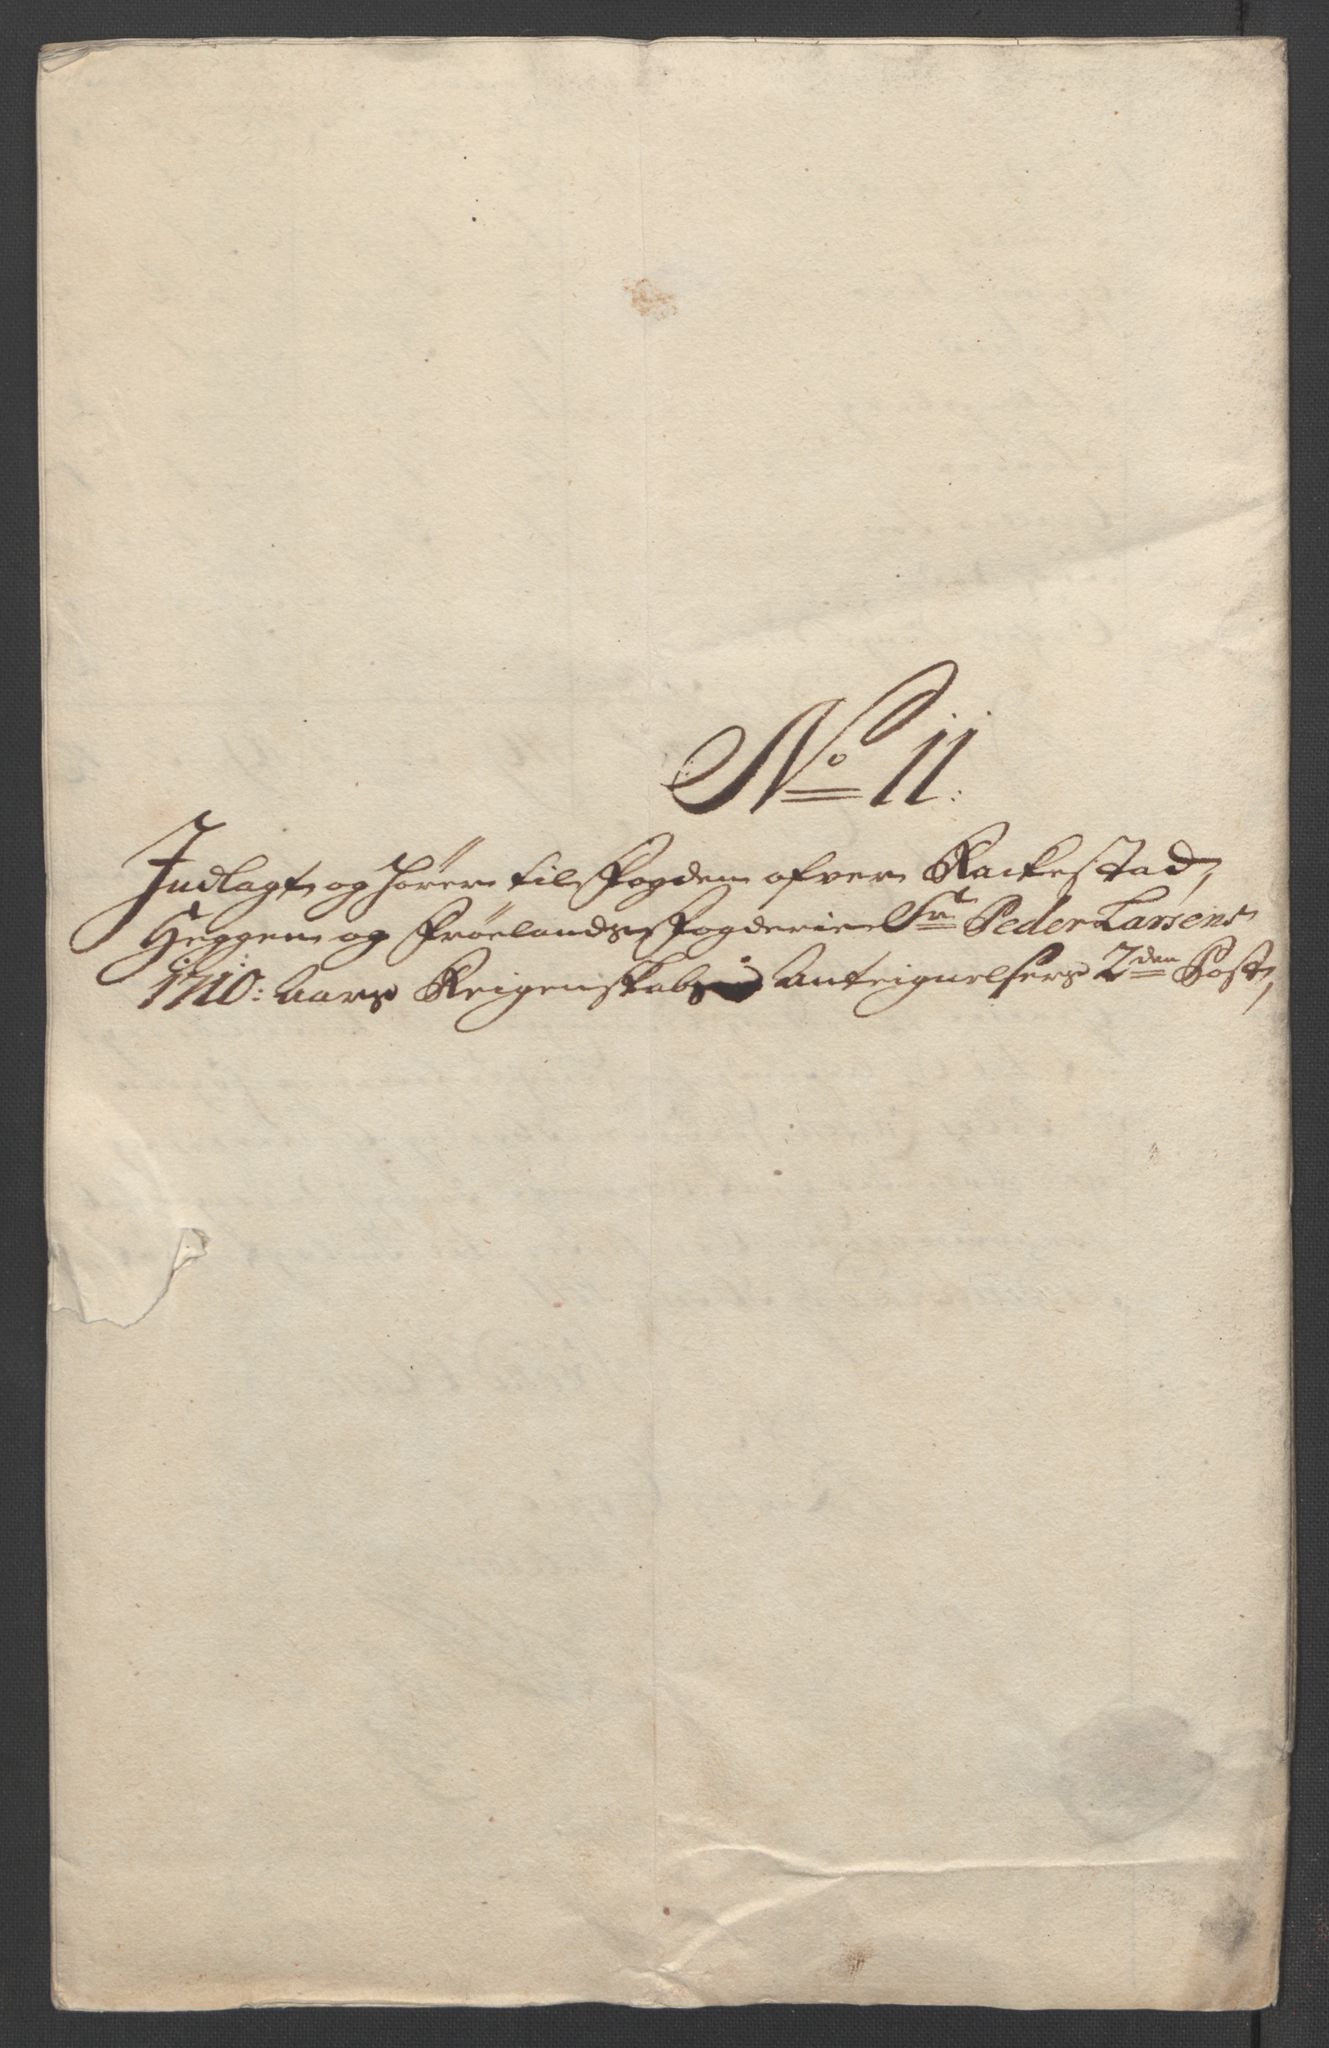 No 11:
Indlagt og hører til Fogden ofver Rackestad,
Heggen og Frøelands Fogderie Sr Peder Larsens
1710: Aars Reigenskabs Anteignelsers 2den Post,